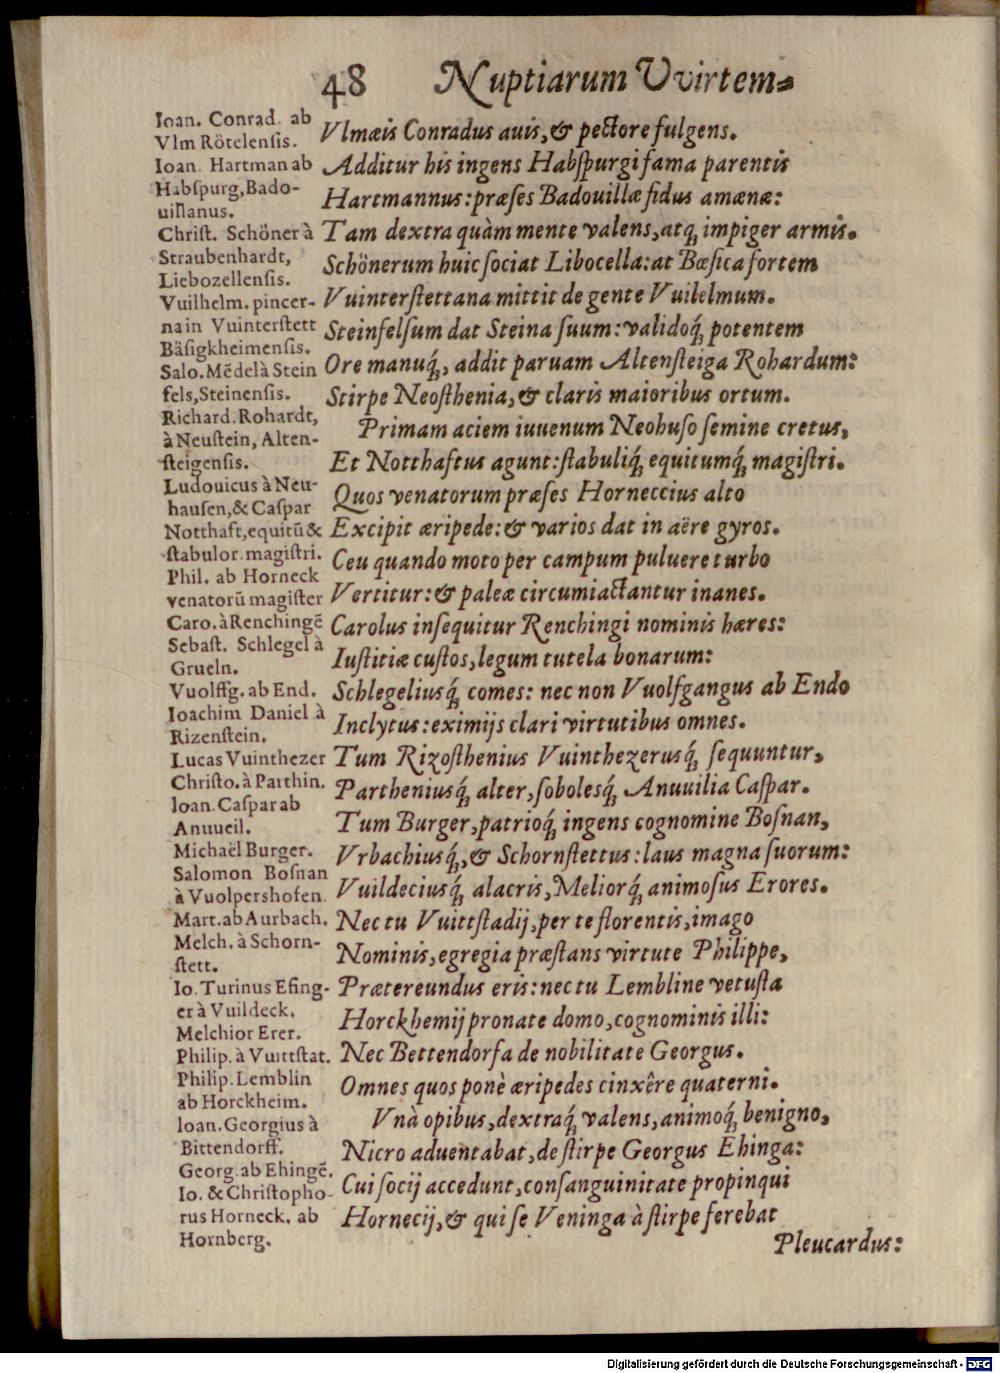 48 Nuptiarum Vvirtem⸗
Ioan. Conrad. ab
Vlm Rötelensis.
Ioan. Hartman ab
Habſpurg, Bado-
uillanus.
Christ. Schöner à
Straubenhardt,
Liebozellensis.
Vuilhelm. pincer-
na in Vuinterstett
Bäsigkheimensis.
Salo. Mēdel à Stein
fels, Steinensis.
Richard. Rohardt,
à Neustein, Alten-
steigensis.
Ludouicus à Neu-
hausen, & Caspar
Notthaft, equitū &
stabulor. magistri.
Phil. ab Horneck
venatorū magister
Caro. à Renchingē
Sebast. Schlegel à
Grueln.
Vuolffg. ab End.
Ioachim Daniel à
Rizenstein.
Lucas Vuinthezer
Christo. à Parthin.
Ioan. Caspar ab
Anuueil.
Michaël Burger.
Salomon Bosnan
à Vuolpershofen.
Mart. ab Aurbach.
Melch. à Schorn-
stett.
Io. Turinus Esing-
er à Vuildeck.
Melchior Erer.
Philip. à Vuittstat.
Philip. Lemblin
ab Horckheim.
Ioan. Georgius à
Bittendorff.
Georg. ab Ehingē.
Io. & Christopho-
rus Horneck. ab
Hornberg.
Vlmæis Conradus auis, & pectore fulgens.
Additur his ingens Habſpurgi fama parentis
Hartmannus: præſes Badouillæ fidus amœnæ:
Tam dextra quàm mente valens, atq; impiger armis.
Schönerum huic ſociat Libocella: at Bæſica fortem
Vuinterſtettana mittit de gente Vuilelmum.
Steinfelſum dat Steina ſuum: validoq́; potentem
Ore manuq́;, addit paruam Altenſteiga Rohardum:
Stirpe Neoſthenia, & claris maioribus ortum.
Primam aciem iuuenum Neohuſo ſemine cretus,
Et Notthaftus agunt: ſtabuliq́; equitumq́; magiſtri.
Quos venatorum præſes Horneccius alto
Excipit æripede: & varios dat in aëre gyros.
Ceu quando moto per campum puluere turbo
Vertitur: & paleæ circumiactantur inanes.
Carolus inſequitur Renchingi nominis hæres:
Iuſtitiæ cuſtos, legum tutela bonarum:
Schlegeliusq́; comes: nec non Vuolfgangus ab Endo
Inclytus: eximijs clari virtutibus omnes.
Tum Rizoſthenius Vuinthezerusq́; ſequuntur,
Partheniusq́; alter, ſobolesq́; Anuuilia Caſpar.
Tum Burger, patrioq́; ingens cognomine Boſnan,
Vrbachiusq́;, & Schornſtettus: laus magna ſuorum:
Vuildeciusq́; alacris, Meliorq́; animoſus Erores.
Nec tu Vuittſtadij, per te florentis, imago
Nominis, egregia præſtans virtute Philippe,
Prætereundus eris: nec tu Lembline vetuſta
Horckhemij pronate domo, cognominis illi:
Nec Bettendorfa de nobilitate Georgus.
Omnes quos ponè æripedes cinxêre quaterni.
Vnà opibus, dextraq́; valens, animoq́; benigno,
Nicro aduentabat, de ſtirpe Georgus Ehinga:
Cui ſocij accedunt, conſanguinitate propinqui
Hornecij, & qui ſe Veninga à ſtirpe ferebat
Pleucardus:
Digitalisierung gefördert durch die Deutsche Forschungsgemeinschaft - DFG